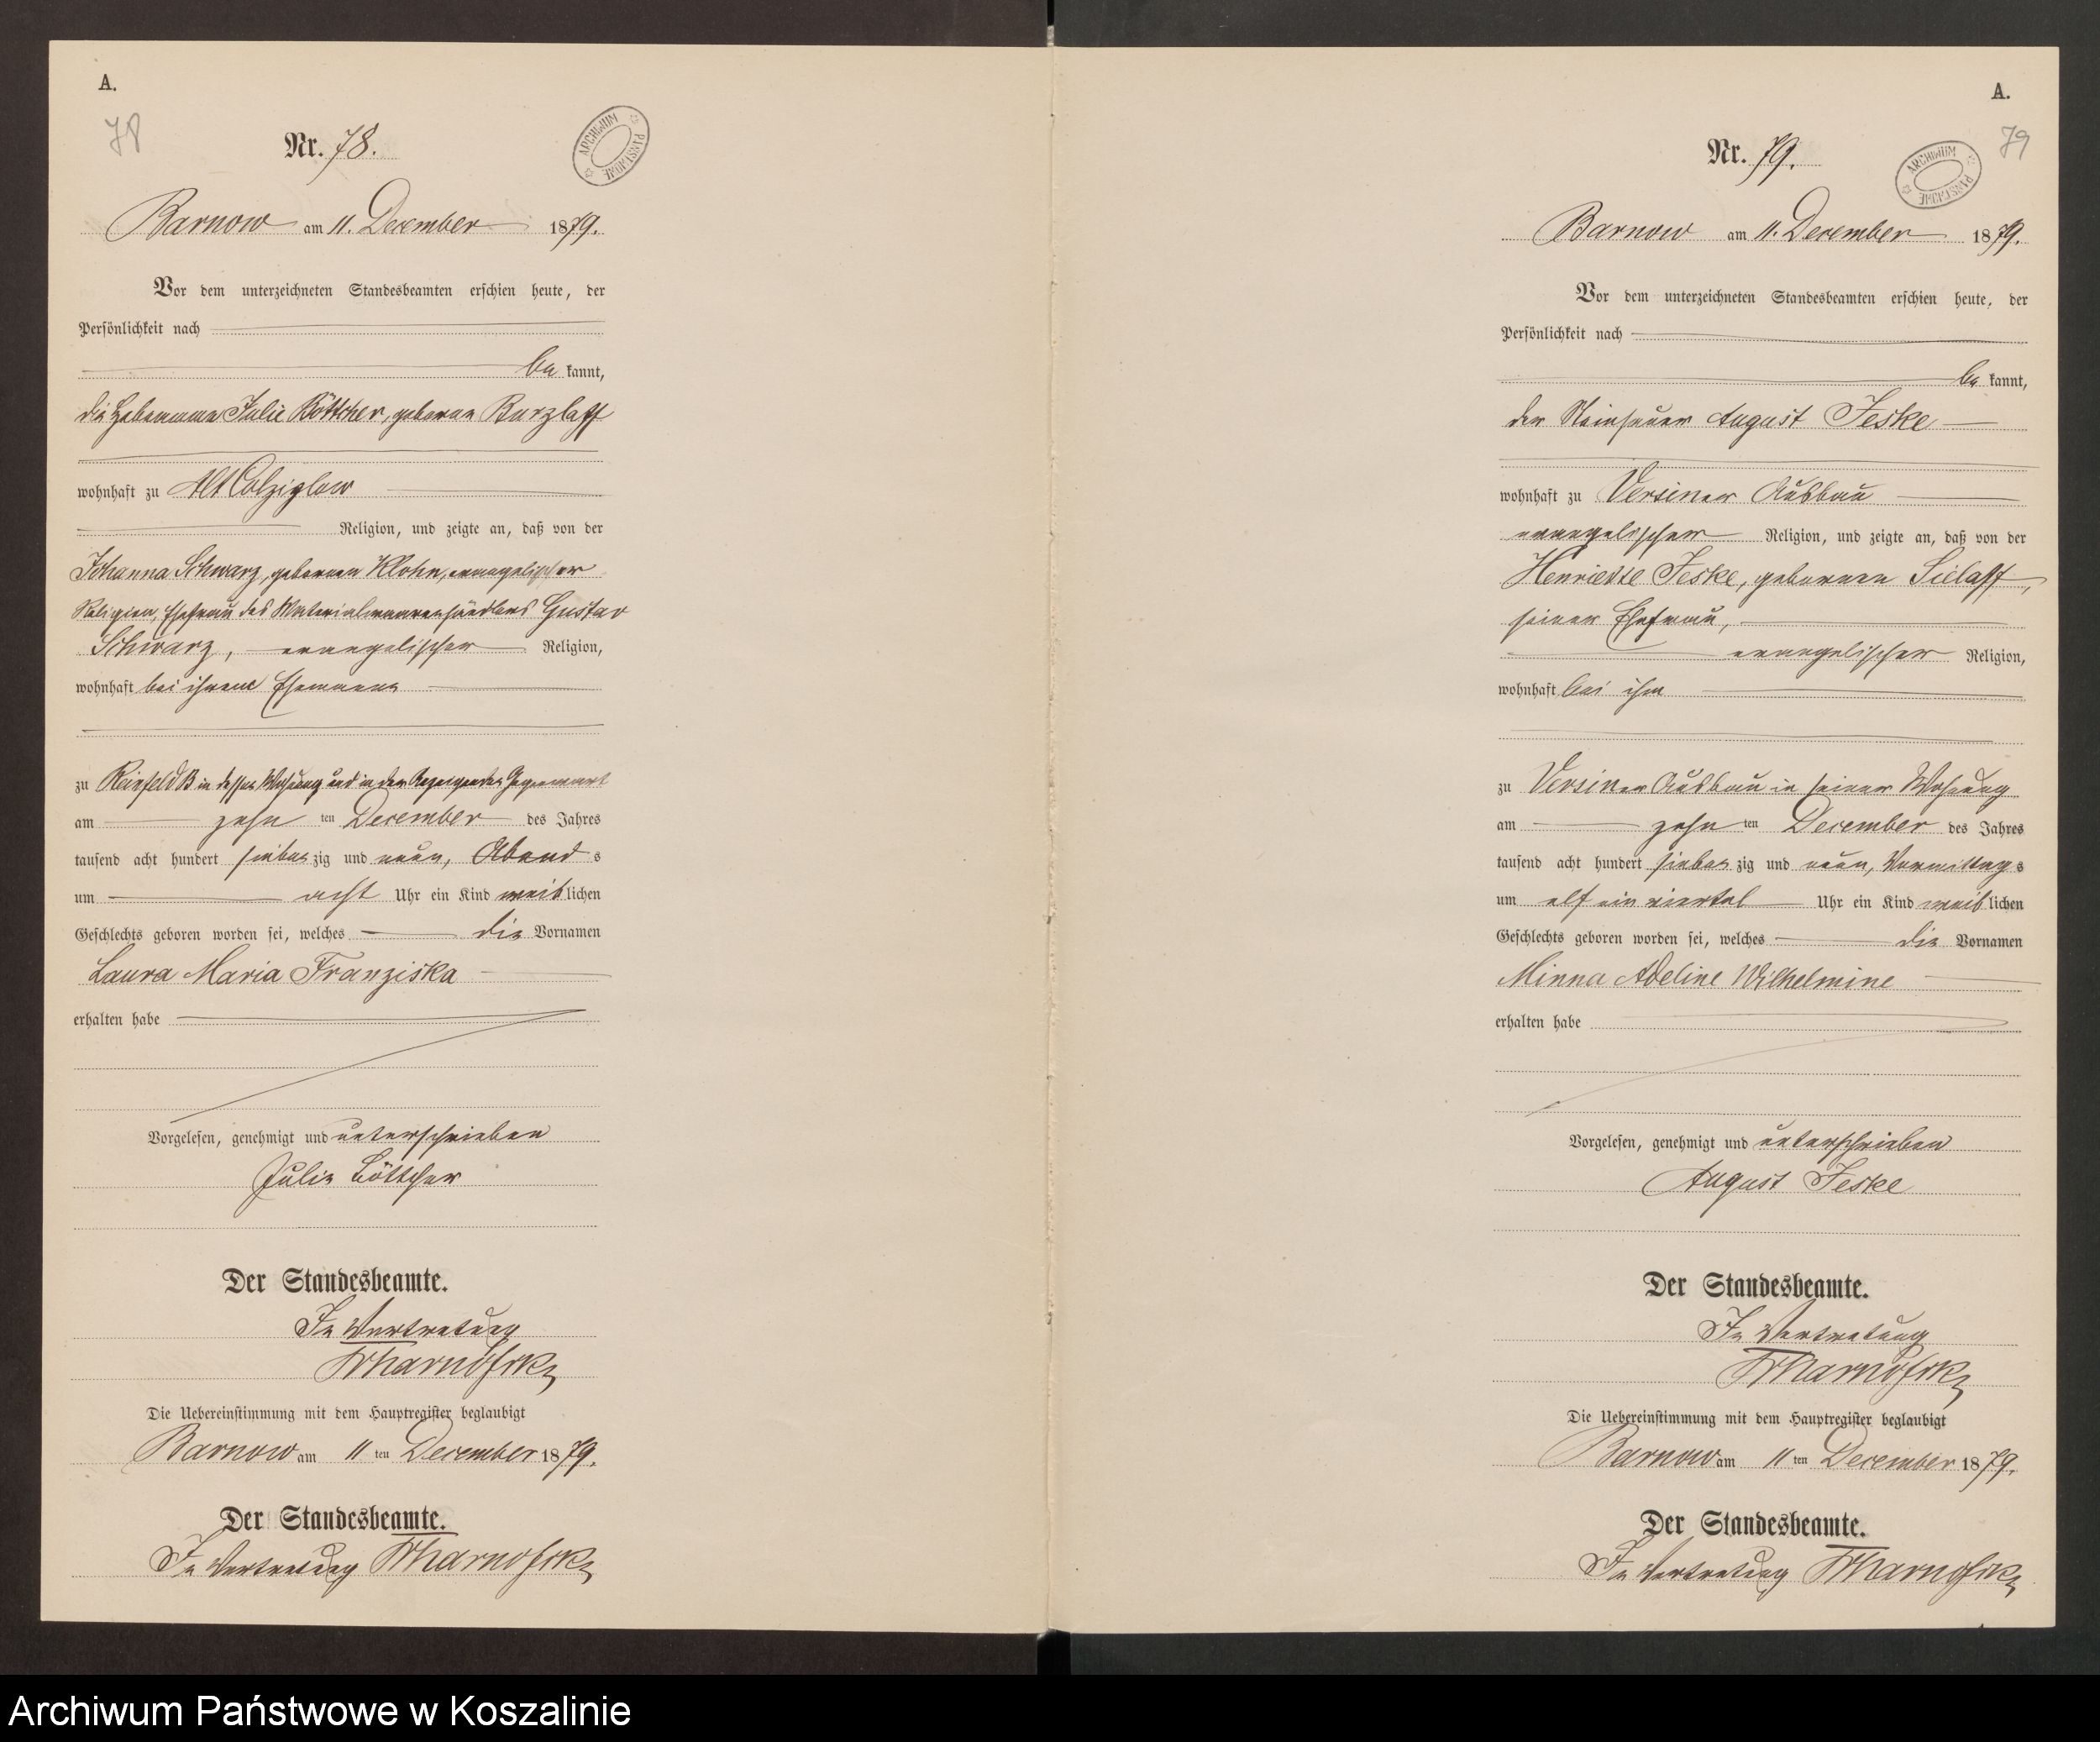 A.
78
Nr. 78.
ARCHIWUM PAŃSTWOWE
Barnow am 11. December 1879.
Vor dem unterzeichneten Standesbeamten erschien heute, der
Persönlichkeit nach
be kannt,
die Hebamme Julie Böttcher, geborene Burzlaff
wohnhaft zu Alt Colziglow
Religion, und zeigte an, daß von der
Johanna Schwarz, geborenen Klohn, evangelischer
Religion, Ehefrau des Materialwaarenhändlers Gustav
Schwarz, evangelischer Religion,
wohnhaft bei ihrem Ehemanne
zu Reinfeld B in dessen Wohnung und in der Anzeigenden Gegenwart
am zehn ten December des Jahres
tausend acht hundert sieben zig und neun, Abend s
um acht Uhr ein Kind weib lichen
Geschlechts geboren worden sei, welches die Vornamen
Laura Maria Franziska
erhalten habe
Vorgelesen, genehmigt und unterschrieben
Julie Böttcher
Der Standesbeamte.
In Vertretung
Die Uebereinstimmung mit dem Hauptregister beglaubigt
Barnow am 11 ten December 1879.
Der Standesbeamte.
In Vertretung
A.
79
Nr. 79.
ARCHIWUM PAŃSTWOWE
Barnow am 11. December 1879.
Vor dem unterzeichneten Standesbeamten erschien heute, der
Persönlichkeit nach
be kannt,
der August Jeske
wohnhaft zu Versiner Ausbau
evangelischer Religion, und zeigte an, daß von der
Henriette Jeske, geborenen Sielaff,
seiner Ehefrau,
evangelischer Religion,
wohnhaft bei ihm
zu Versiner Ausbau in seiner Wohnung
am zehn ten December des Jahres
tausend acht hundert sieben zig und neun, Vormittag s
um elf ein viertel Uhr ein Kind weib lichen
Geschlechts geboren worden sei, welches die Vornamen
Minna Adeline Wilhelmine
erhalten habe
Vorgelesen, genehmigt und unterschrieben
August Jeske
Der Standesbeamte.
In Vertretung
Die Uebereinstimmung mit dem Hauptregister beglaubigt
Barnow am 11 ten December 1879.
Der Standesbeamte.
In Vertretung
Archiwum Państwowe w Koszalinie